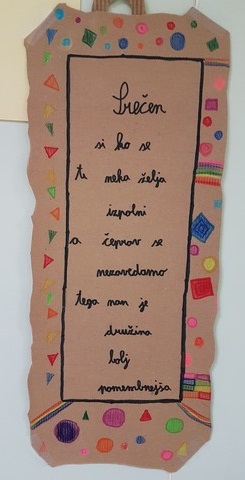 Srečen
si ko se
ti neka želja
izpolni
a čeprav se
nezavedamo
tega nam je
družina
bolj
pomembnejša